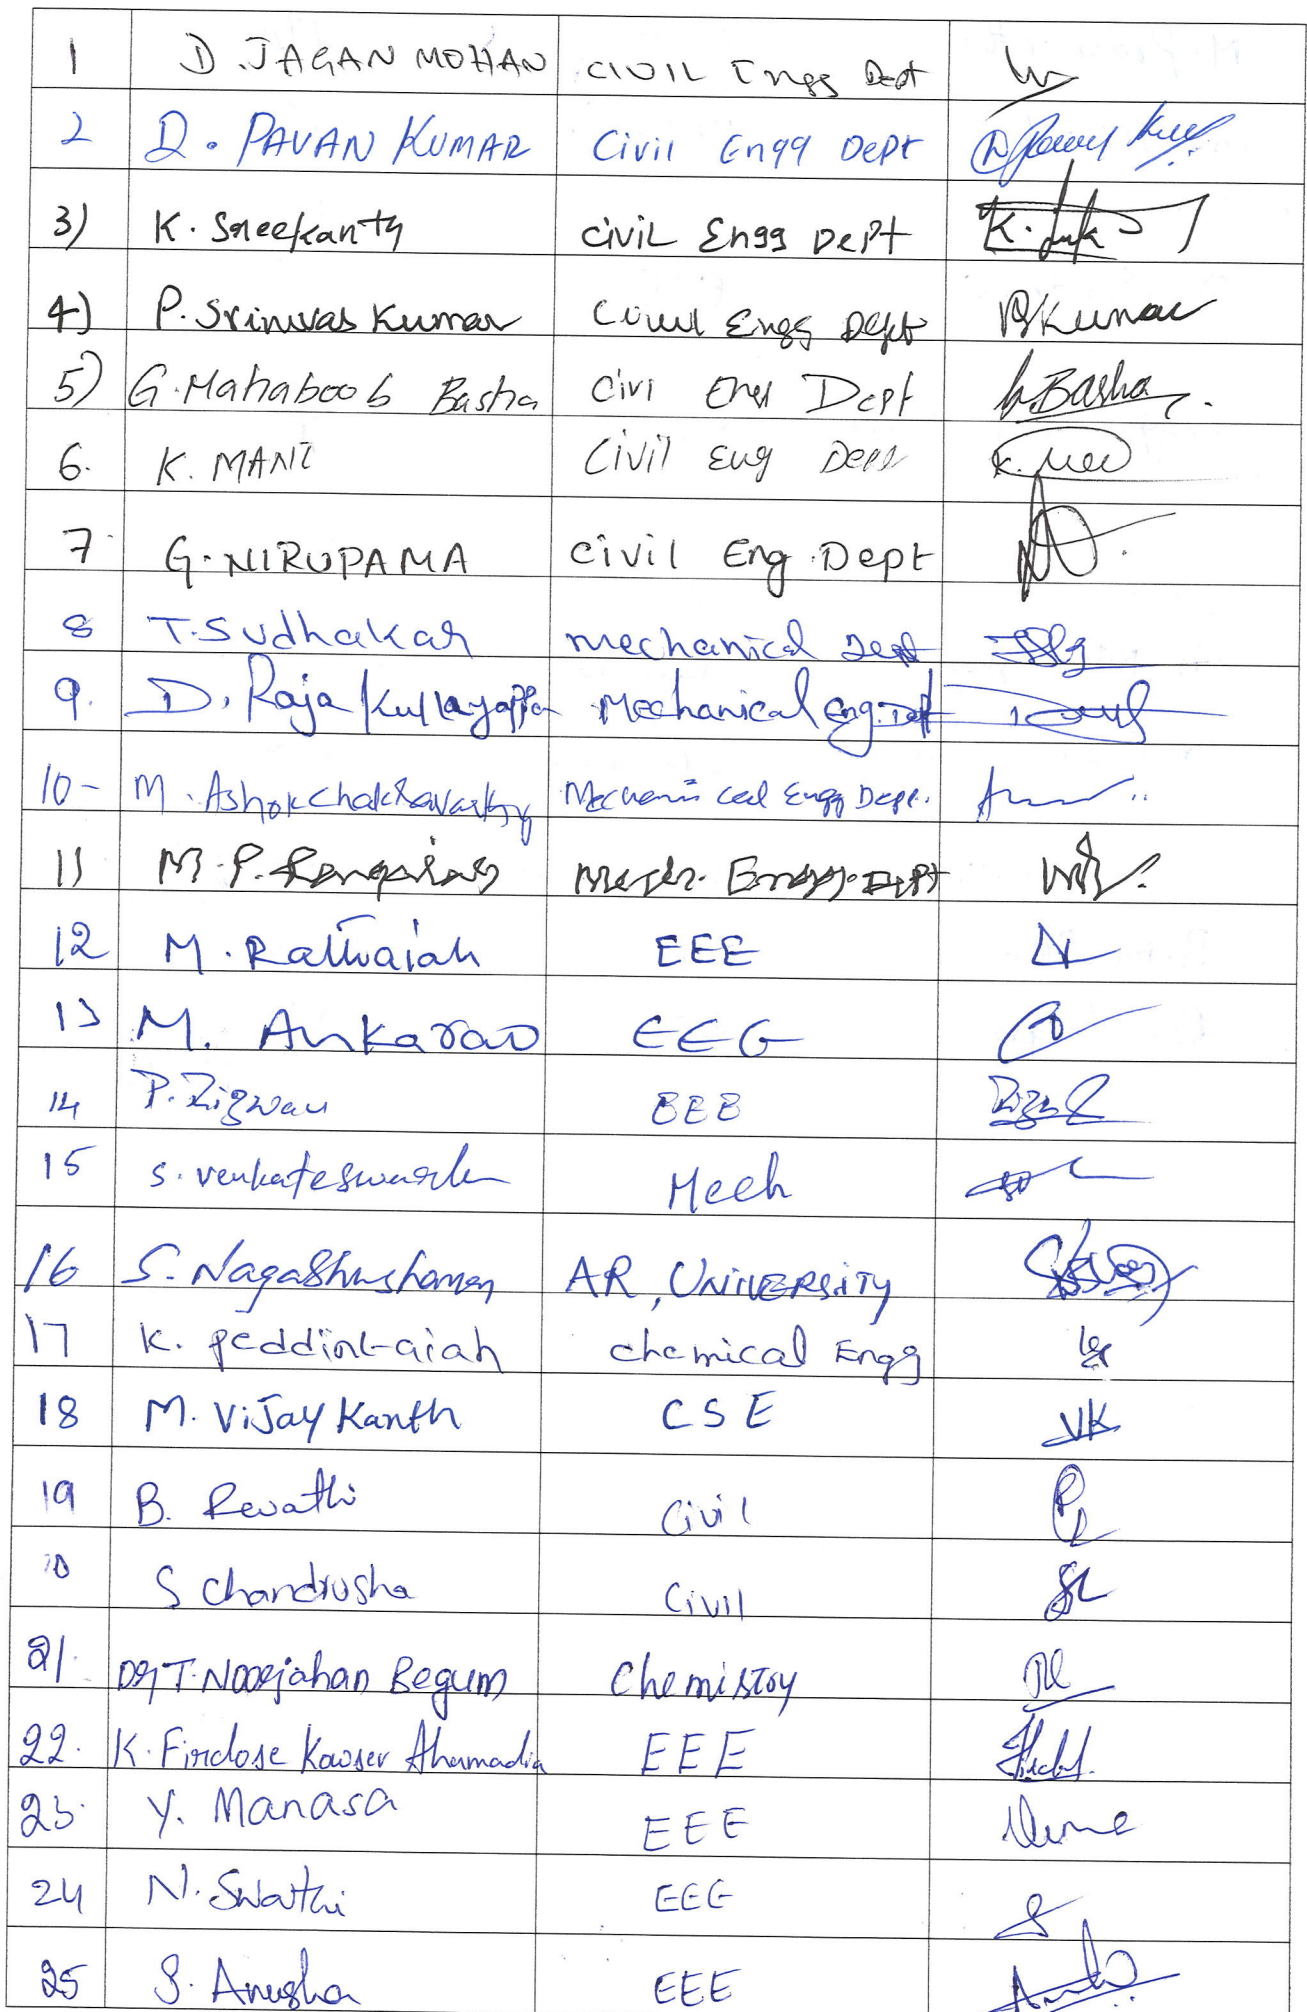 1 D. JAGAN MOHAN CIVIL Engg Dept
2 D. PAVAN KUMAR Civil Engg Dept
3) K. Sreekanth civil Engg Dept K.
4) P. Srinivas Kumar Civil Engg Dept PSKumar
5) G. Mahaboob Basha Civi Eng Dept G.Basha
6. K. MANI Civil Eng Dept K.
7 G. NIRUPAMA Civil Eng. Dept
8 T. Sudhakar mechanical Dept
9. D. Raja Kullayappa Mechanical Eng. Dept
10- M. Ashok Chakravarthy Mechanical Engg Dept.
11 M. P. Rangaiah Mech. Engg. Dept
12 M. Rattaiah EEE
13 M. Ankarao EEE
14 P. Rizwan EEE
15 S. Venkateswarlu Mech
16 S. Nagabhushanam AR, UNIVERSITY
17 K. Peddintaiah chemical Engg
18 M. Vijay Kanth CSE VK
19 B. Revathi Civil
20 S Chandrusha Civil
21. Dr T. Noorjahan Begum Chemistry
22. K. Firdose Kowser Ahamadia EEE
23. Y. Manasa EEE
24 N. Swathi EEE
25 S. Anusha EEE